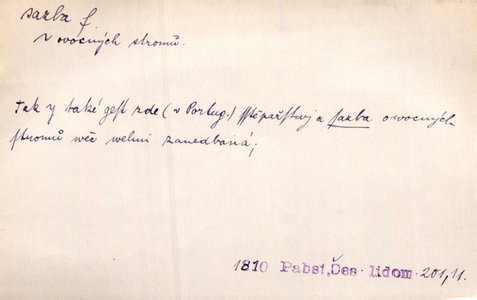 sazba f.
v ovocných stromů.
Tak y také gest zde (v Portug.) sstěpařstwj a sazba owocných
stromů wěc welmi zanedbaná;
1810 Pabst, Čes. lidom. 201, 11.